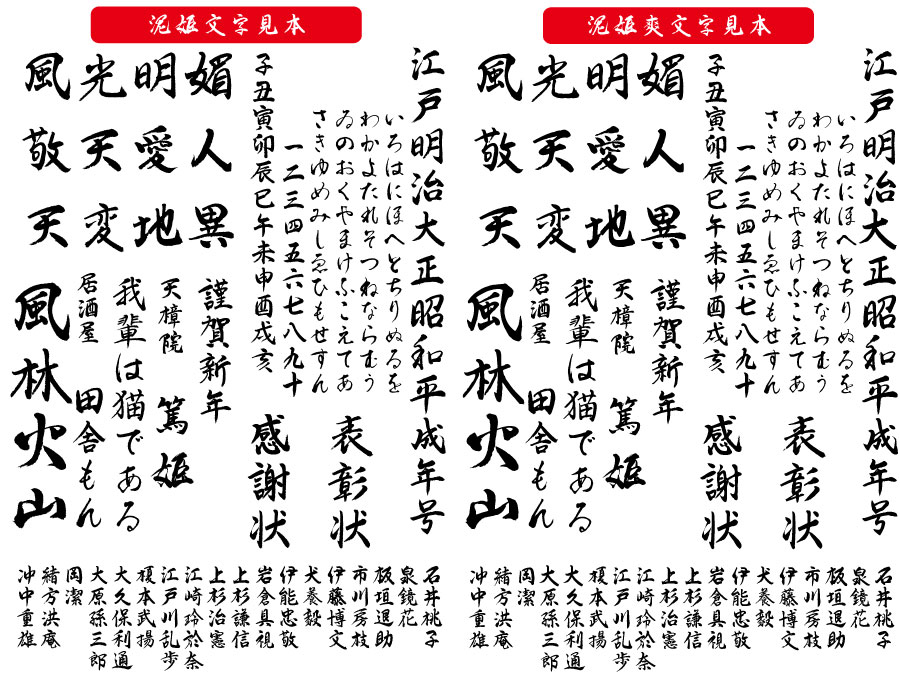 泥姫文字見本
江戸明治大正昭和平成年号
いろはにほへとちりぬるを
わかよたれそつねならむう
ゐのおくやまけふこえてあ
さきゆめみしゑひもせすん
一二三四五六七八九十
表彰状
子丑寅卯辰巳午未申酉戌亥
感謝状
風光明媚
敬天愛人
天変地異
謹賀新年
天樟院 篤姫
我輩は猫である
居酒屋 田舎もん
風林火山
石井桃子
泉鏡花
板垣退助
市川房枝
伊藤博文
犬養毅
伊能忠敬
岩倉具視
上杉謙信
上杉治憲
江崎玲於奈
江戸川乱歩
榎本武揚
大久保利通
大原孫三郎
岡潔
緒方洪庵
沖中重雄
泥姫爽文字見本
江戸明治大正昭和平成年号
いろはにほへとちりぬるを
わかよたれそつねならむう
ゐのおくやまけふこえてあ
さきゆめみしゑひもせすん
一二三四五六七八九十
表彰状
子丑寅卯辰巳午未申酉戌亥
感謝状
風光明媚
敬天愛人
天変地異
謹賀新年
天樟院 篤姫
我輩は猫である
居酒屋 田舎もん
風林火山
石井桃子
泉鏡花
板垣退助
市川房枝
伊藤博文
犬養毅
伊能忠敬
岩倉具視
上杉謙信
上杉治憲
江崎玲於奈
江戸川乱歩
榎本武揚
大久保利通
大原孫三郎
岡潔
緒方洪庵
沖中重雄